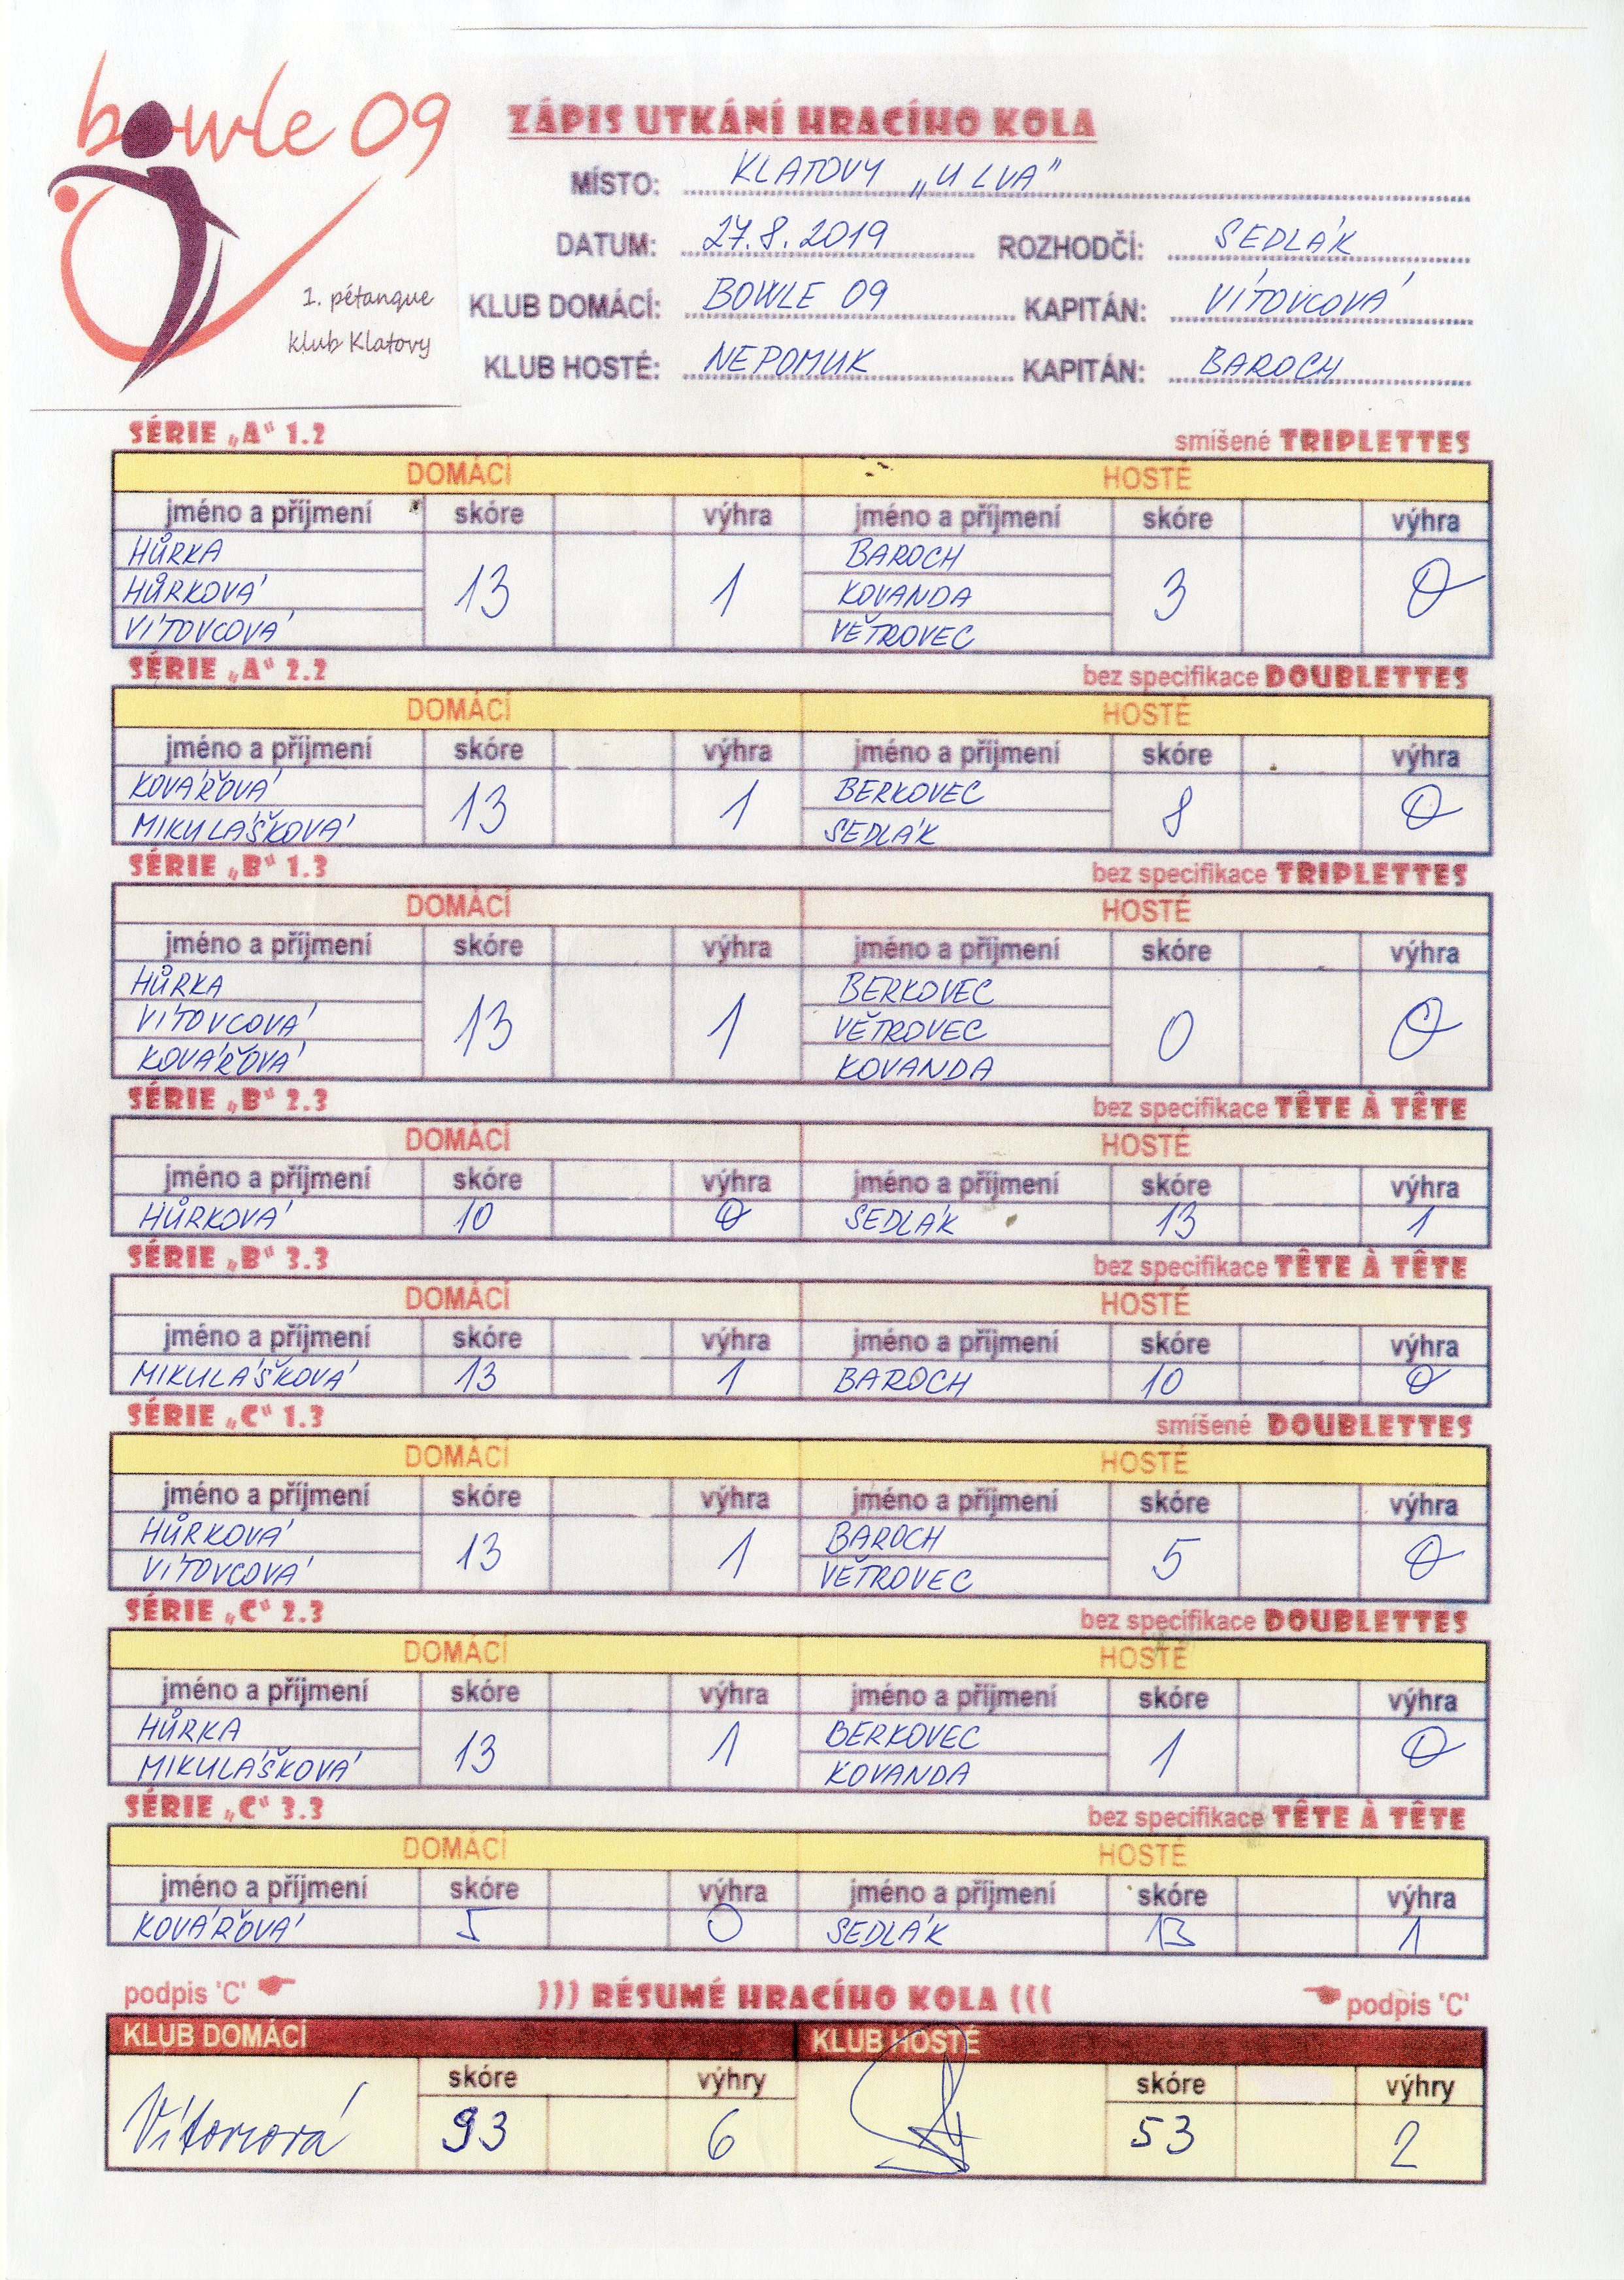 bowle 09
1. pétanque
klub Klatovy
ZÁPIS UTKÁNÍ HRACÍHO KOLA
MÍSTO: KLATOVY „U LVA"
DATUM: 27.8.2019 ROZHODČÍ: SEDLÁK
KLUB DOMÁCÍ: BOWLE 09 KAPITÁN: VÍTOVCOVÁ
KLUB HOSTÉ: NEPOMUK KAPITÁN: BAROCH
SÉRIE „A“ 1.2 smíšené TRIPLETTES
DOMÁCÍ HOSTÉ
jméno a příjmení skóre výhra jméno a příjmení skóre výhra
HŮRKA BAROCH
HŮRKOVÁ 13 1 KOVANDA 3 0
VÍTOVCOVÁ VĚTROVEC
SÉRIE „A“ 2.2 bez specifikace DOUBLETTES
DOMÁCÍ HOSTÉ
jméno a příjmení skóre výhra jméno a příjmení skóre výhra
KOVÁŘOVÁ 13 1 BERKOVEC 8 0
MIKULÁŠKOVÁ SEDLÁK
SÉRIE „B“ 1.3 bez specifikace TRIPLETTES
DOMÁCÍ HOSTÉ
jméno a příjmení skóre výhra jméno a příjmení skóre výhra
HŮRKA BERKOVEC
VÍTOVCOVÁ 13 1 VĚTROVEC 0 0
KOVÁŘOVÁ KOVANDA
SÉRIE „B“ 2.3 bez specifikace TÊTE À TÊTE
DOMÁCÍ HOSTÉ
jméno a příjmení skóre výhra jméno a příjmení skóre výhra
HŮRKOVÁ 10 0 SEDLÁK 13 1
SÉRIE „B“ 3.3 bez specifikace TÊTE À TÊTE
DOMÁCÍ HOSTÉ
jméno a příjmení skóre výhra jméno a příjmení skóre výhra
MIKULÁŠKOVÁ 13 1 BAROCH 10 0
SÉRIE „C“ 1.3 smíšené DOUBLETTES
DOMÁCÍ HOSTÉ
jméno a příjmení skóre výhra jméno a příjmení skóre výhra
HŮRKOVÁ 13 1 BAROCH 5 0
VÍTOVCOVÁ VĚTROVEC
SÉRIE „C“ 2.3 bez specifikace DOUBLETTES
DOMÁCÍ HOSTÉ
jméno a příjmení skóre výhra jméno a příjmení skóre výhra
HŮRKA 13 1 BERKOVEC 1 0
MIKULÁŠKOVÁ KOVANDA
SÉRIE „C“ 3.3 bez specifikace TÊTE À TÊTE
DOMÁCÍ HOSTÉ
jméno a příjmení skóre výhra jméno a příjmení skóre výhra
KOVÁŘOVÁ 5 0 SEDLÁK 13 1
podpis 'C' ))) RÉSUMÉ HRACÍHO KOLA ((( podpis 'C'
KLUB DOMÁCÍ KLUB HOSTÉ
skóre výhry skóre výhry
Vítovcová 93 6 53 2